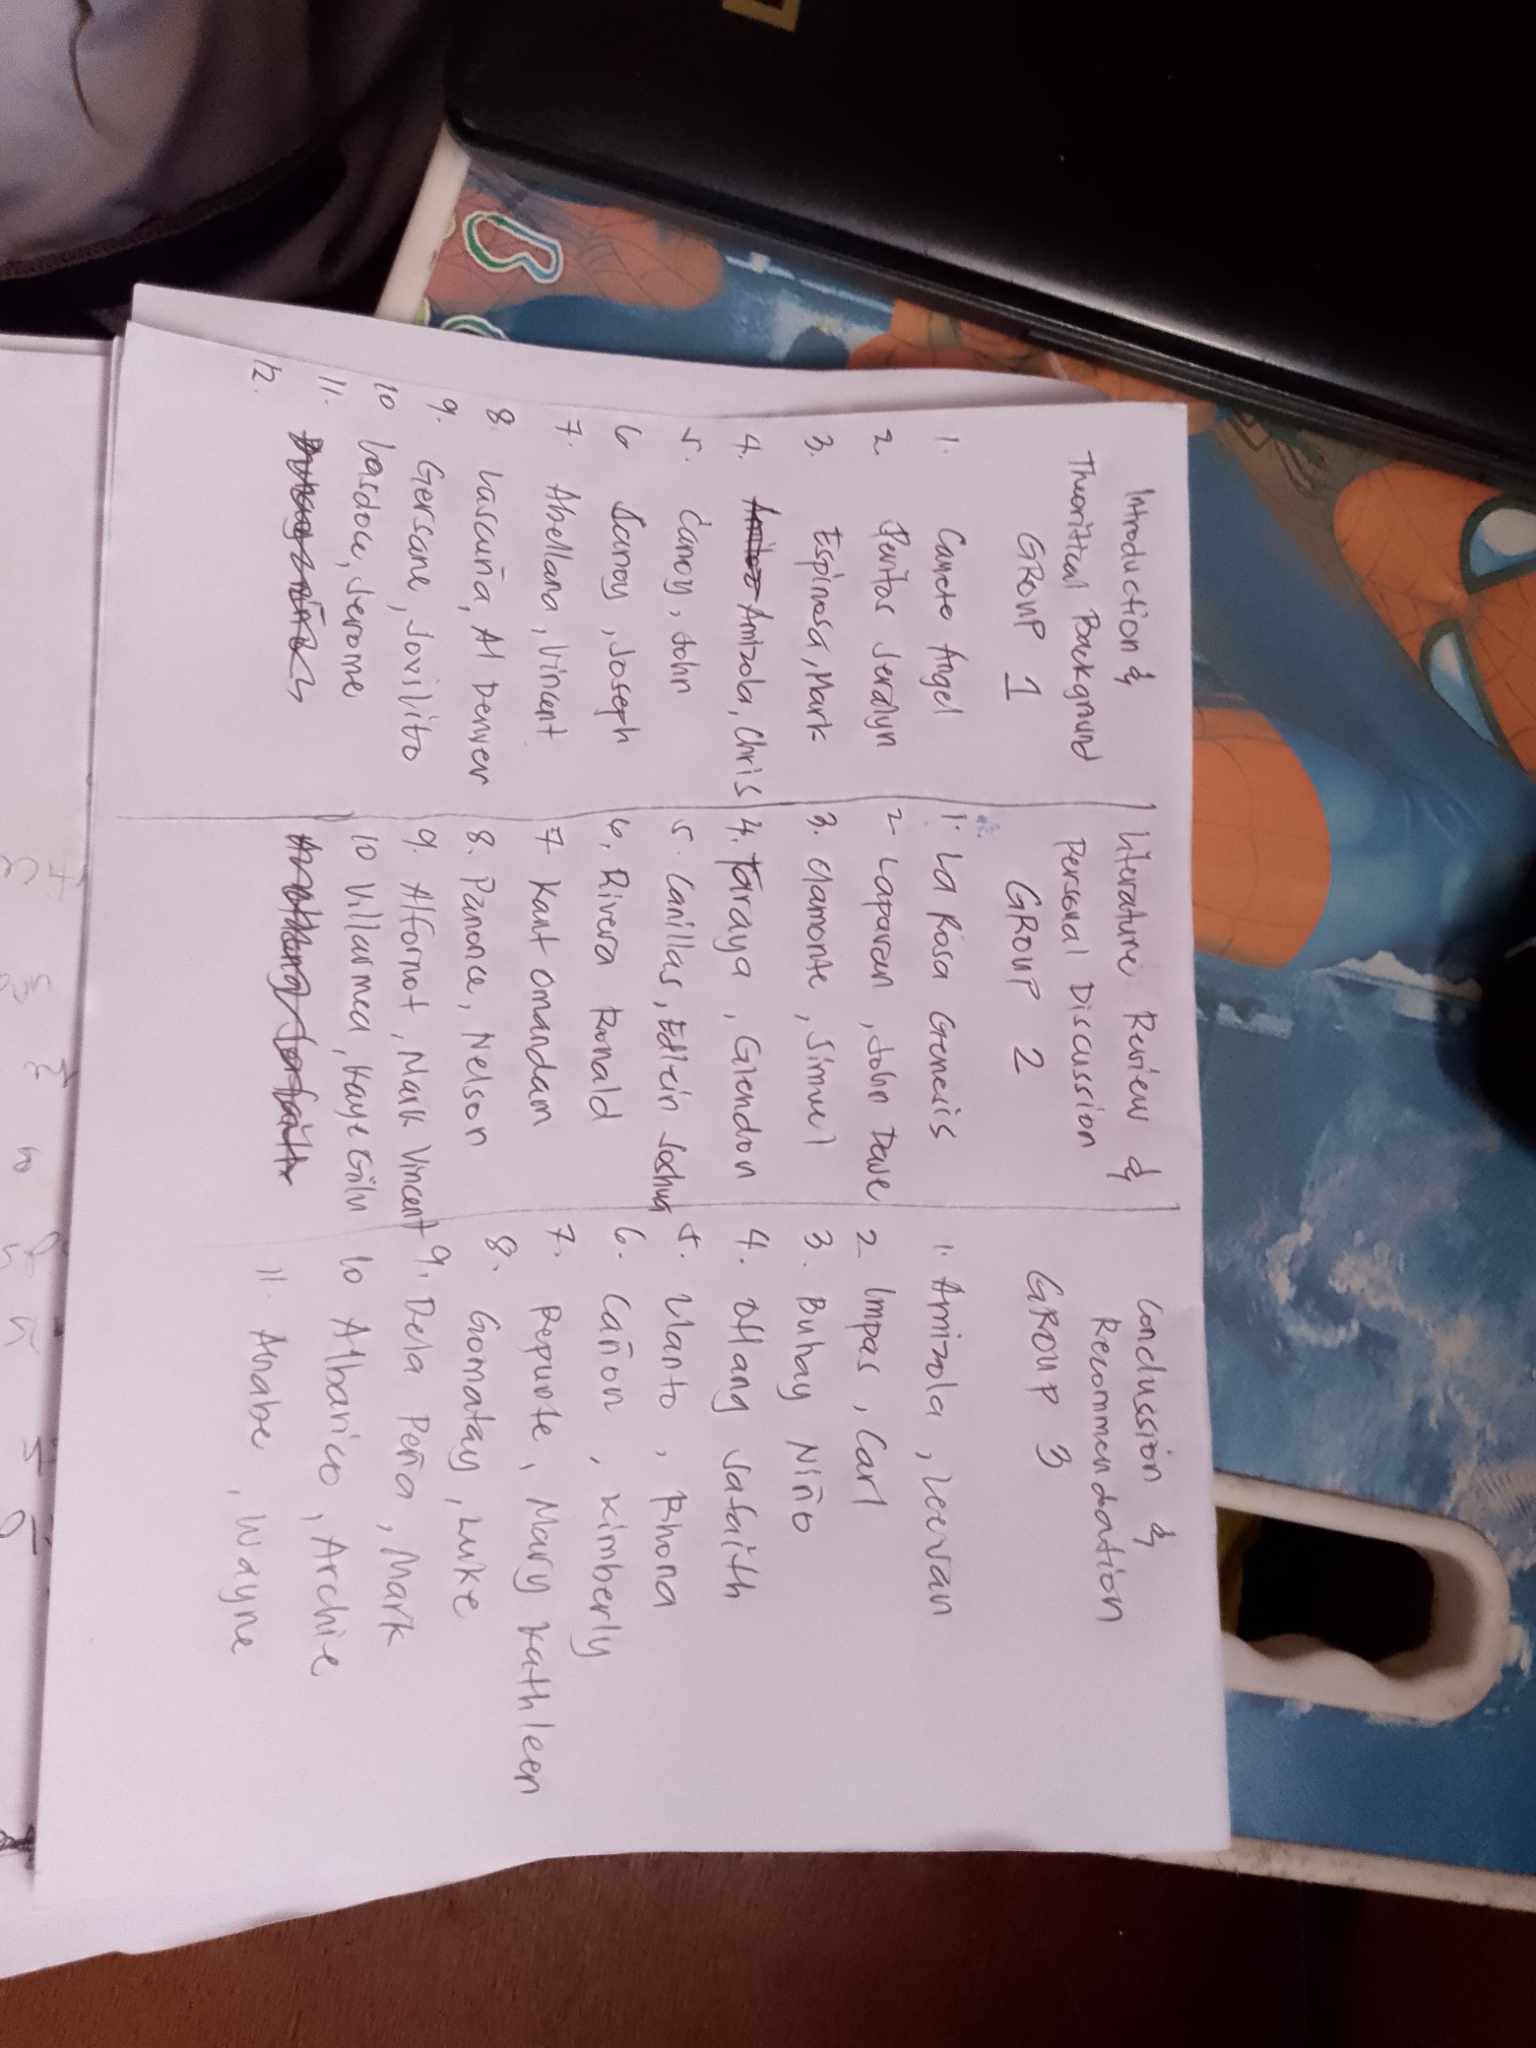 Introduction &
Theorittcal Background
GROUP 1
1. Canete Angel
2 Pentos Jeralyn
3. Espinosa, Mark
4. Amizola, Chris
5. Canoy, John
6 Canoy, Joseph
7. Abellana, Vincent
8. Lascuña, Al Denver
9. Gersane, Jovilito
10 Lasdoce, Jerome
11.
12.
Literature Review &
Personal Discussion
GROUP 2
1. La Rosa Genesis
2 Laparan, John Dave
3. Clamonte, Simuel
4. Taraya, Glendon
5. Canillas, Joshua
6. Rivera Ronald
7 Kant Omandam
8. Panonce, Nelson
9. Alfornot, Mark Vincent
10 Villarmea, Kaye
Conclussion &
Recommendation
GROUP 3
1. Amizola, Leevan
2 Impas, Carl
3. Buhay Niño
4. Oflang Safaith
5. Llanto, Rhona
6. Cañon, Kimberly
7. Repunte, Mary Kathleen
8. Gomatay, Luke
9. Dela Peña, Mark
10 Albarico, Archie
11. Wayne